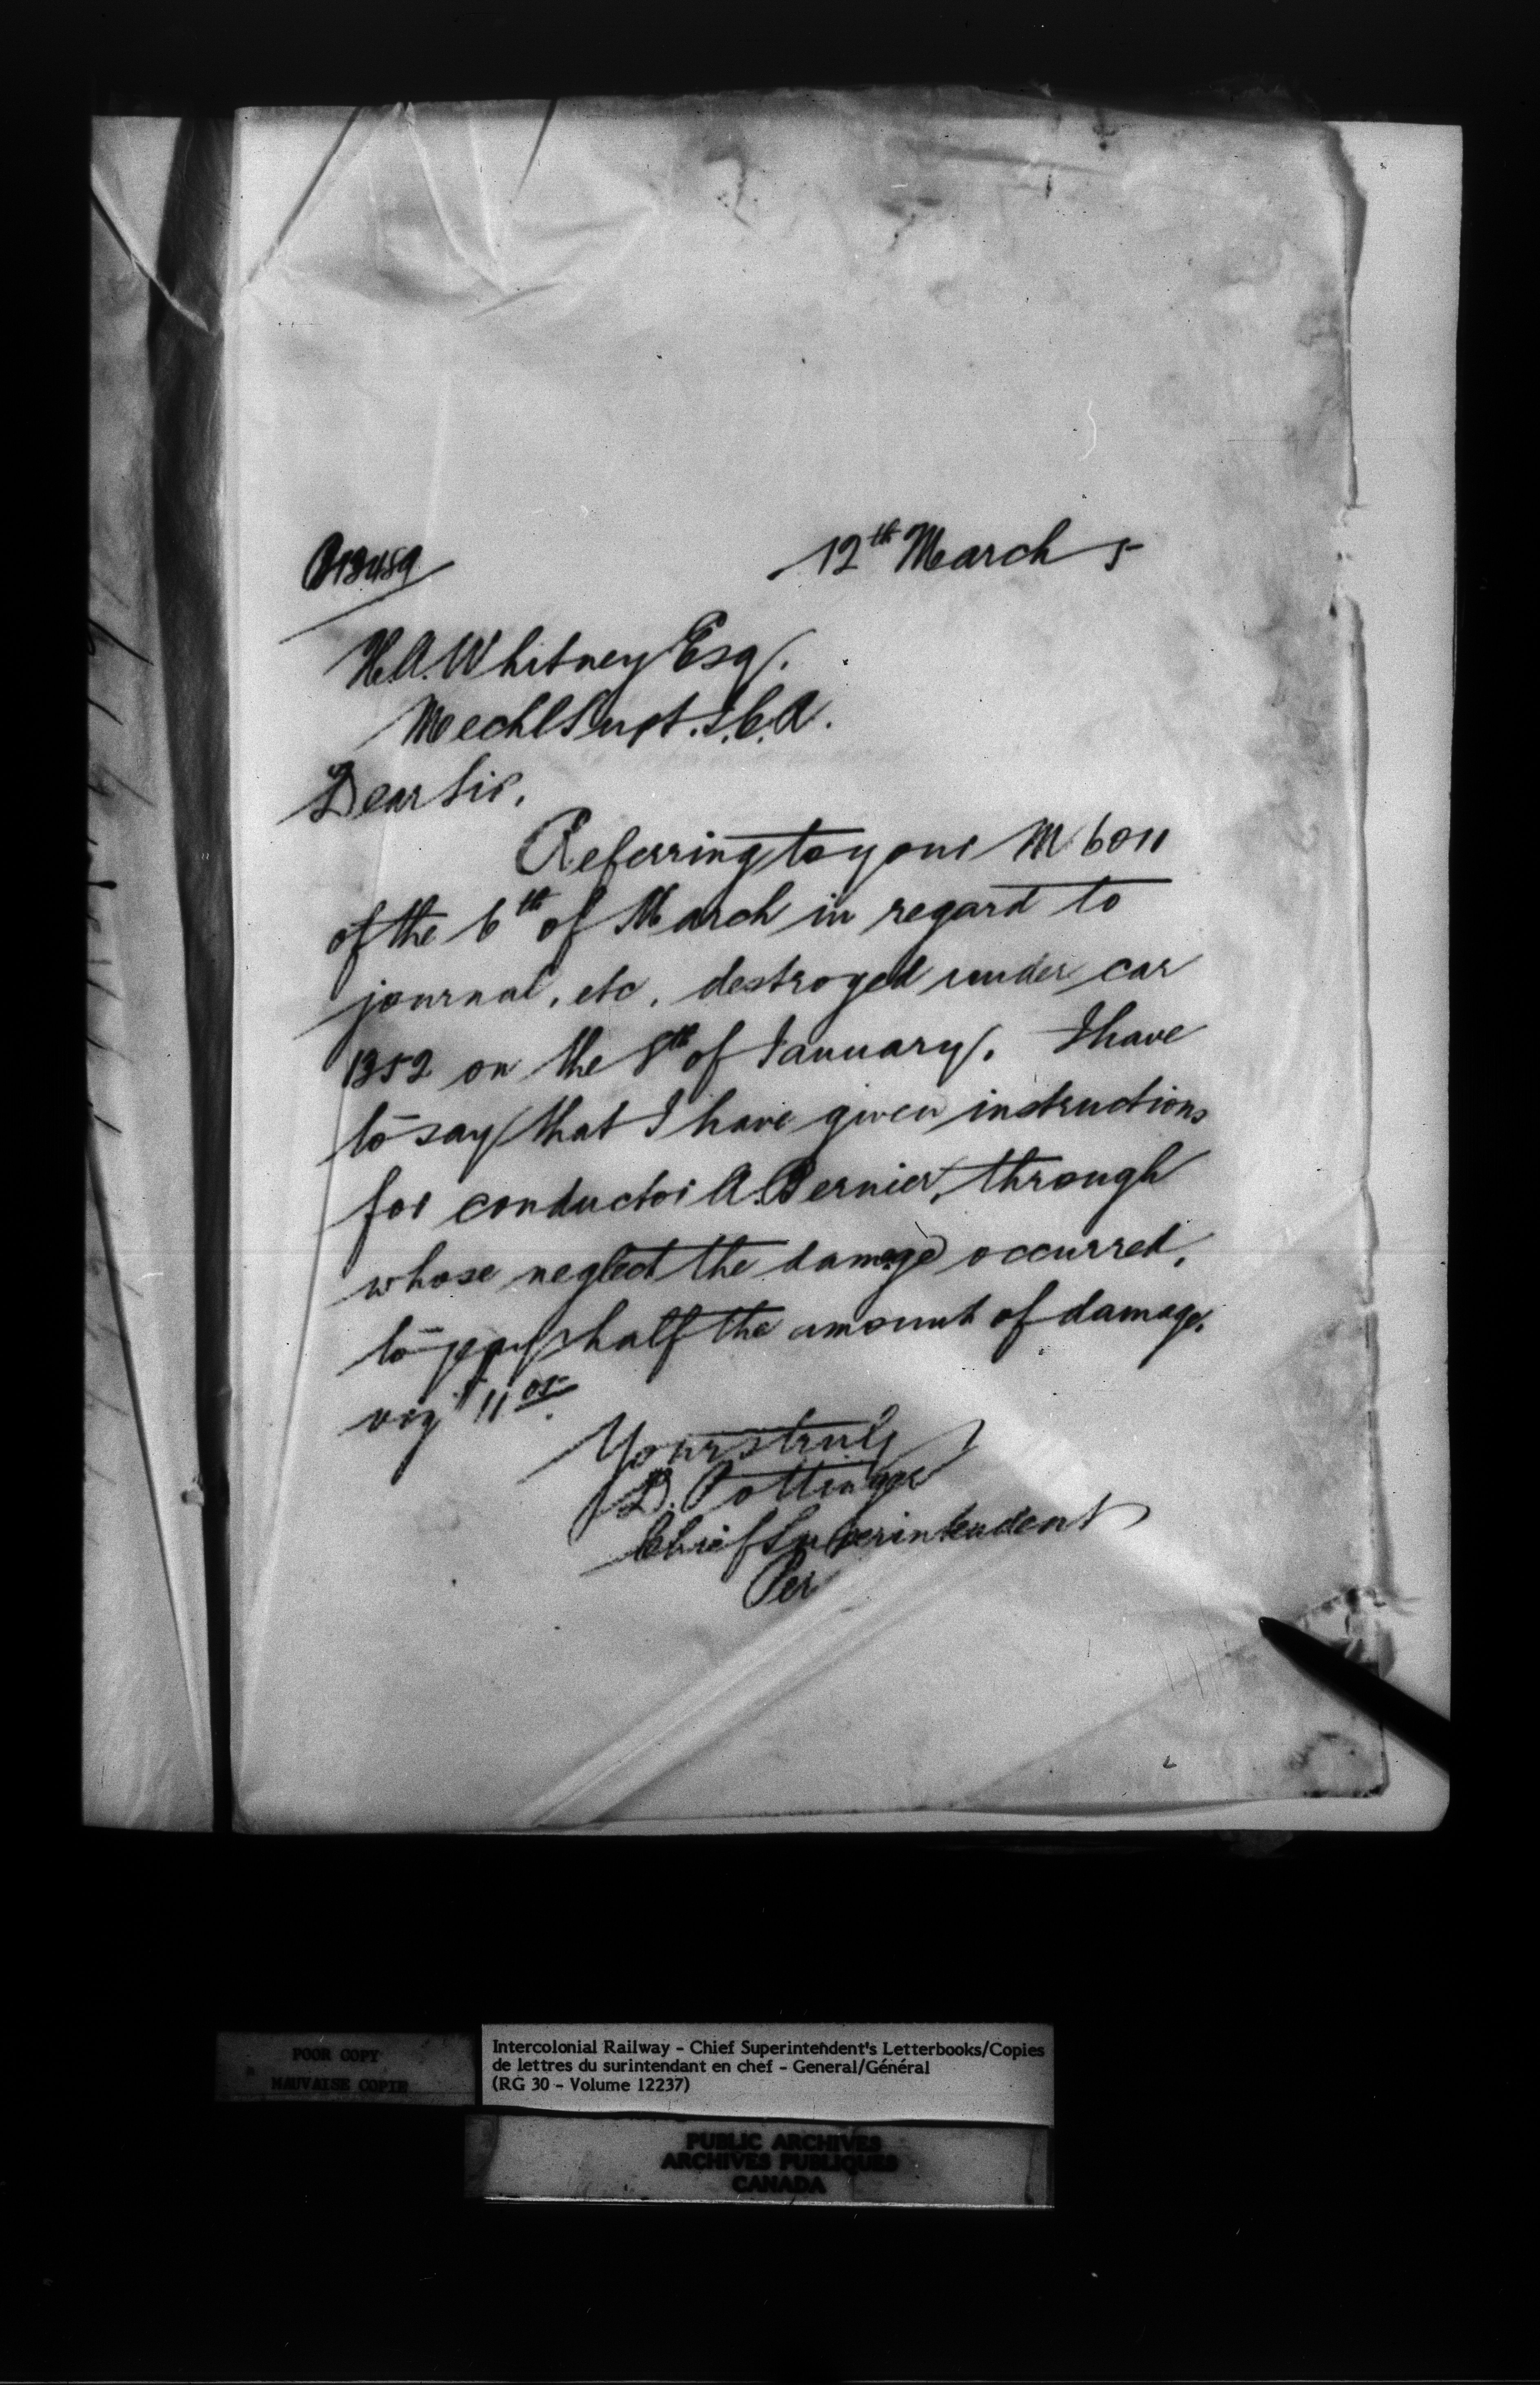 12th March 5
H.A. Whitney Esq.
Mechl Supt. I.C.R.
Dear Sir,
Referring to your M 6011
of the 6th of March in regard to
journal, etc, destroyed under car
1352 on the 8th of January. I have
to say that I have given instructions
for conductor A. Bernier, through
whose neglect the damage occurred,
to pay half the amount of damage,
viz $11.05.
Yours truly
D. Pottinger
Chief Superintendent
Per
POOR COPY
MAUVAISE COPIE
Intercolonial Railway - Chief Superintendent's Letterbooks/Copies
de lettres du surintendant en chef - General/Général
(RG 30 - Volume 12237)
PUBLIC ARCHIVES
ARCHIVES PUBLIQUES
CANADA